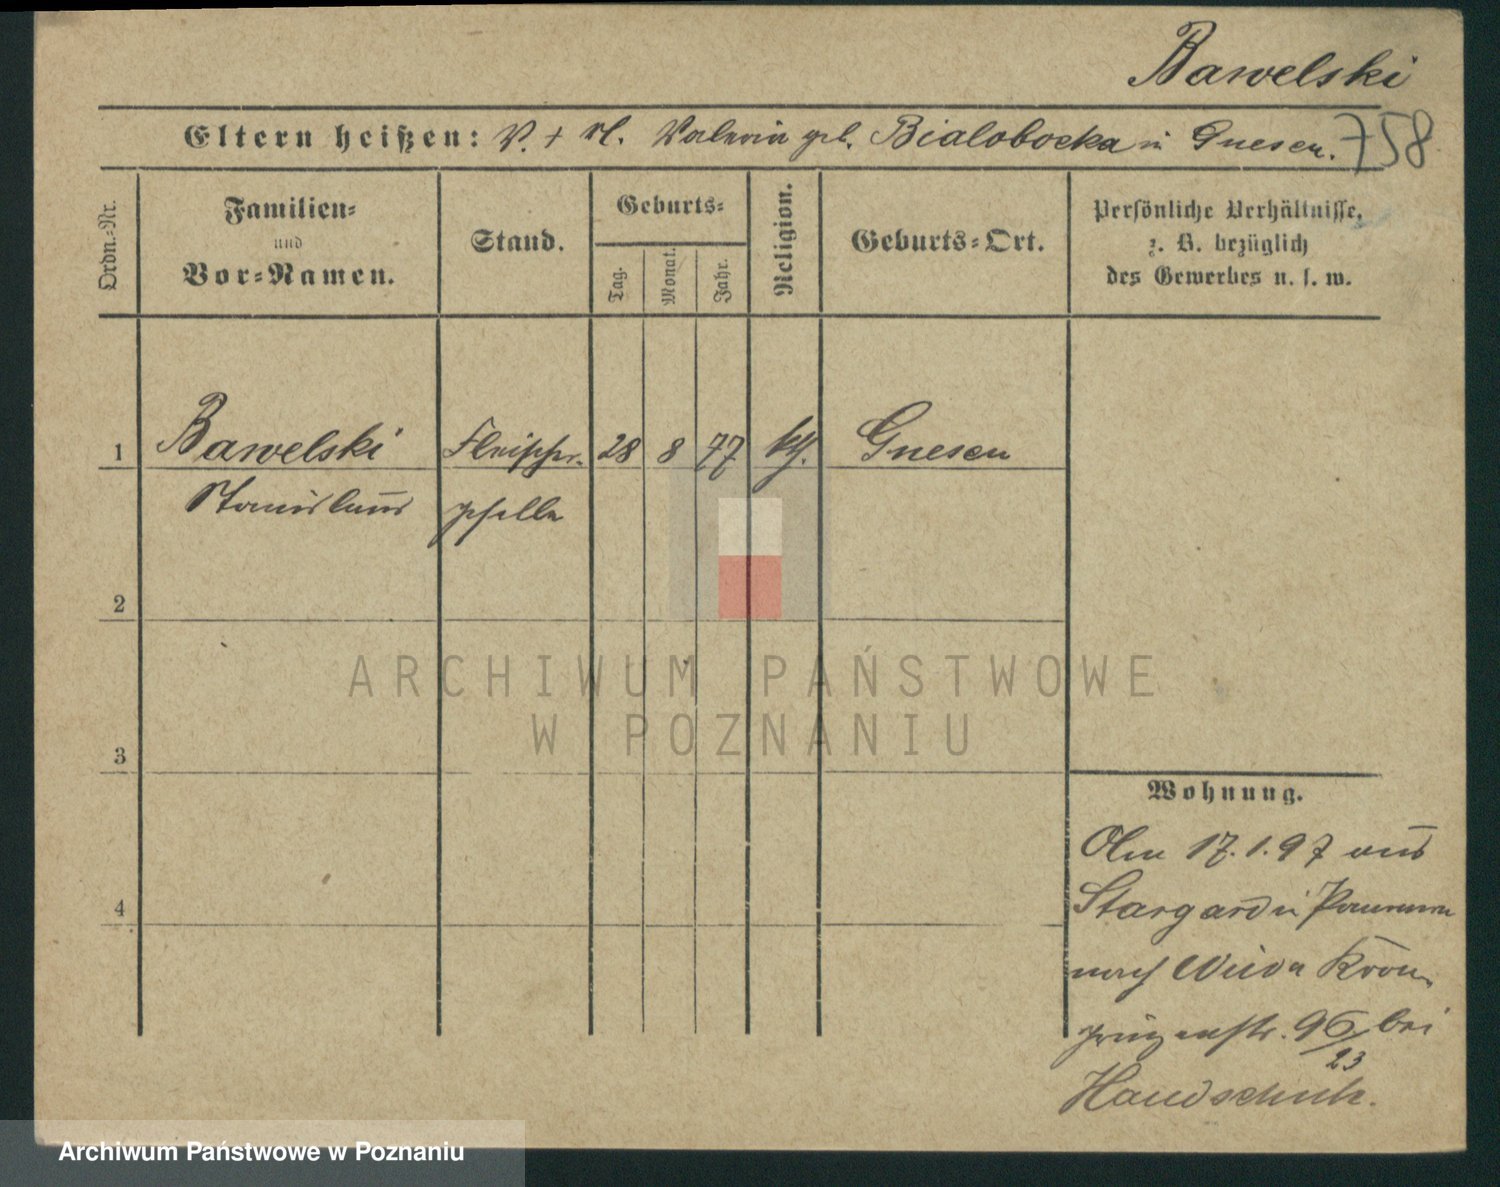 Bawelski
Eltern heißen: V. + M. Valeria geb. Bialobocka in Gnesen. 758
Ordn.-Nr.
Familien-
und
Vor-Namen.
Stand.
Geburts-
Tag.
Monat.
Jahr.
Religion.
Geburts-Ort.
Persönliche Verhältnisse,
z. B. bezüglich
des Gewerbes u. s. w.
1 Bawelski Fleischer- 28 8 77 kth. Gnesen
Stanislaus geselle
2
3
4
Wohnung.
Am 17.1.97 aus
Stargard i Pommern
nach Wilda Kron-
prinzenstr. 96/23 bei
Handschuh.
ARCHIWUM PAŃSTWOWE
W POZNANIU
Archiwum Państwowe w Poznaniu